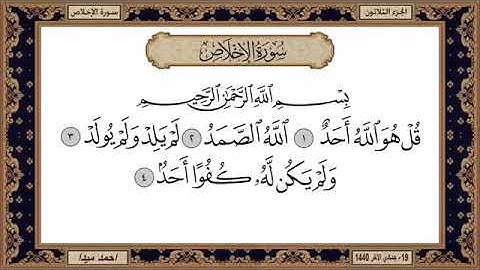 سورة الإخلاص
الجزء الثلاثون
سُورَةُ الإِخْلَاصِ
بِسْمِ اللَّهِ الرَّحْمَٰنِ الرَّحِيمِ
قُلْ هُوَ اللَّهُ أَحَدٌ ١ اللَّهُ الصَّمَدُ ٢ لَمْ يَلِدْ وَلَمْ يُولَدْ ٣
وَلَمْ يَكُن لَّهُ كُفُوًا أَحَدٌ ٤
احمد ميدا
19- جمادي الآخر 1440